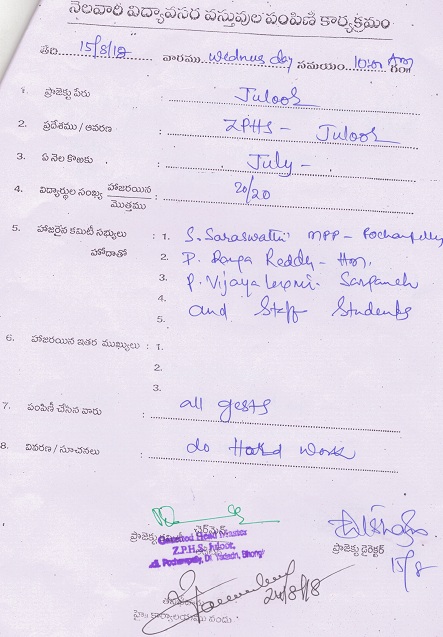 నెలవారీ విద్యావసర వస్తువుల పంపిణీ కార్యక్రమం
తేది 15/8/18 వారము wednus day సమయం 10:00 Am గం॥
1. ప్రాజెక్టు పేరు : Juloor
2. ప్రదేశము / ఆవరణ : ZPHS - Juloor
3. ఏ నెల కొఱకు : July -
4. విద్యార్థుల సంఖ్య హాజరయిన / మొత్తము : 20/20
5. హాజరైన కమిటీ సభ్యులు : 1. S. Saraswathi MPP - Pochampally
హోదాతో 2. P. Ranga Reddy - Hm.
3. P. Vijaya laxmi. Sarpanch
4. and Staff Students
5.
6. హాజరయిన ఇతర ముఖ్యులు : 1.
2.
3.
7. పంపిణీ చేసిన వారు : all gests
8. వివరణ / సూచనలు : do Hard work
ప్రాజెక్టు చైర్మైన్
ప్రాజెక్టు డైరెక్టర్
Gazetted Head Master
Z.P.H.S. Juloor,
Pochampally, Dt. Yadadri, Bhongir
15/8
24/8/18
హై కార్యాలయము నందు